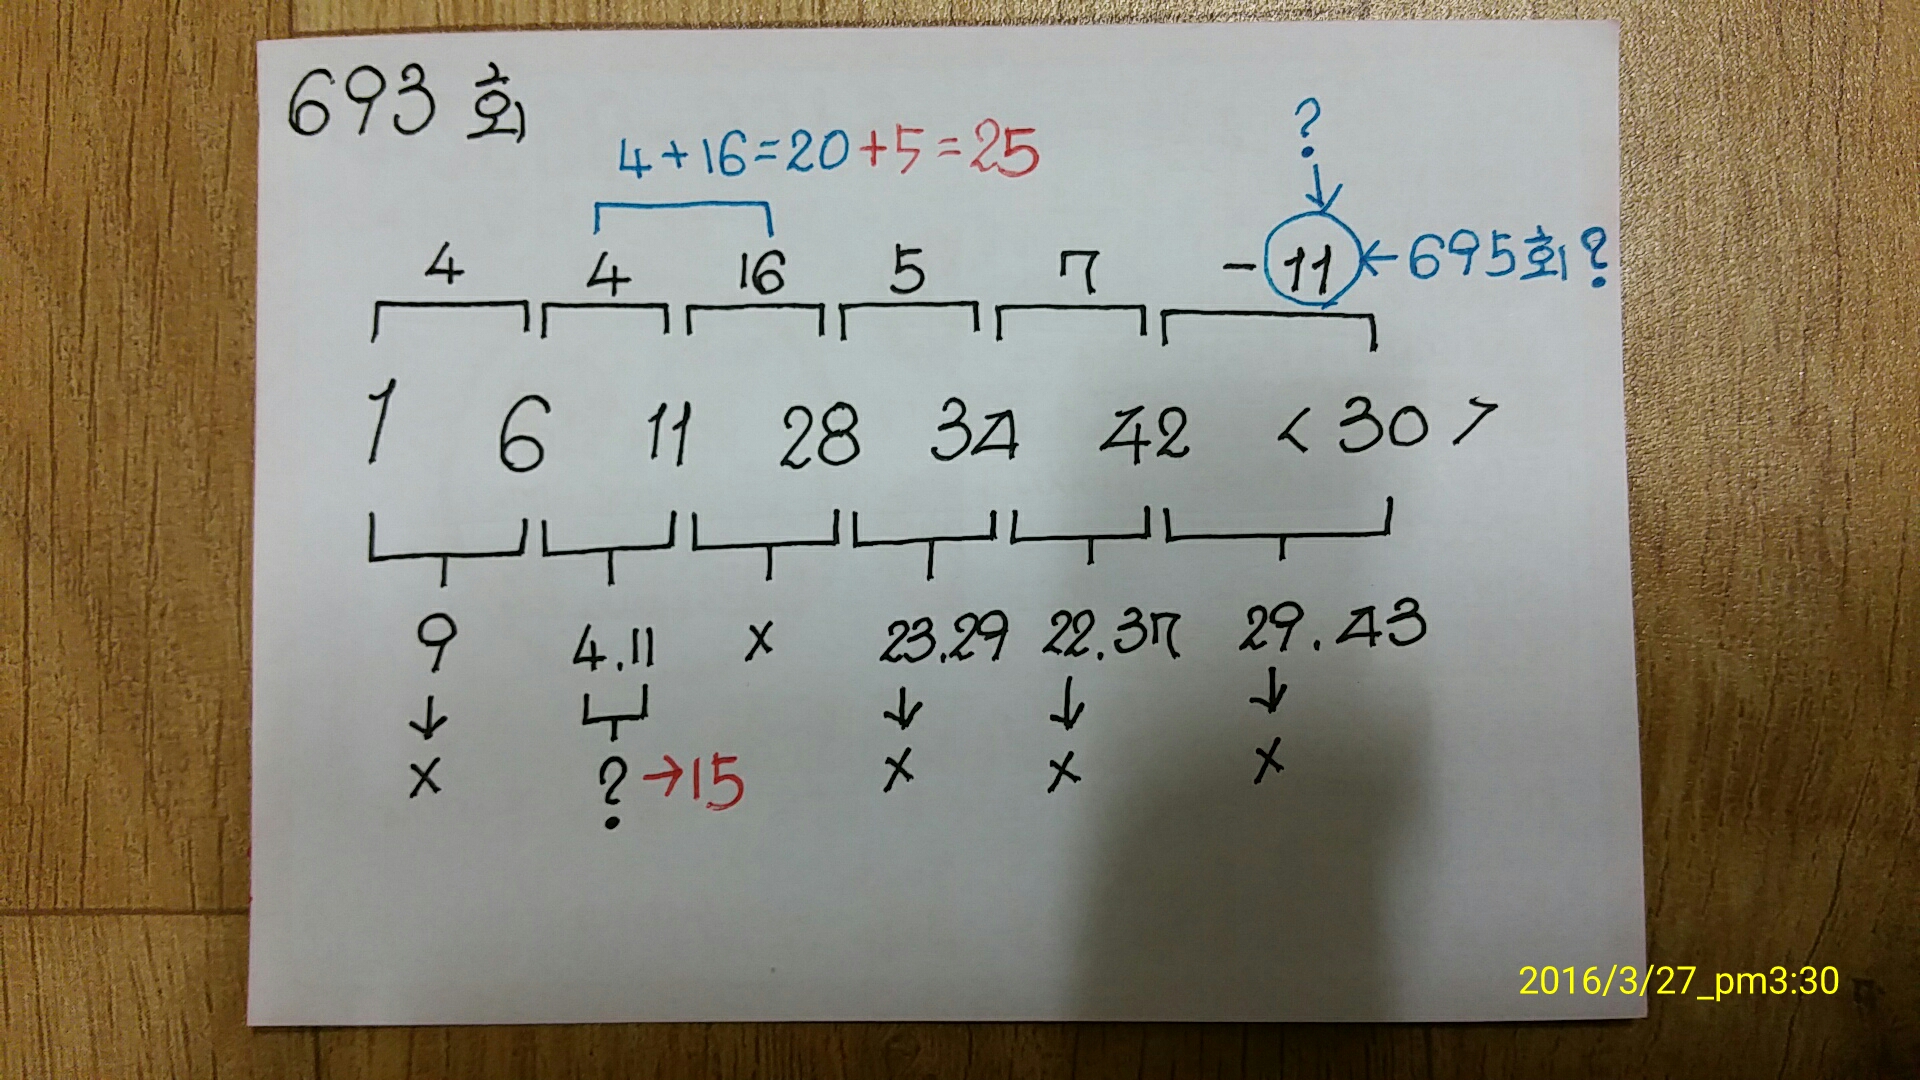 693 회
?
4+16=20+5=25
4 4 16 5 7 -11 ←695회?
1 6 11 28 34 42 <30>
9 4.11 x 23.29 22.37 29.43
↓ ↓ ↓ ↓
x ?→15 x x x
2016/3/27_pm3:30